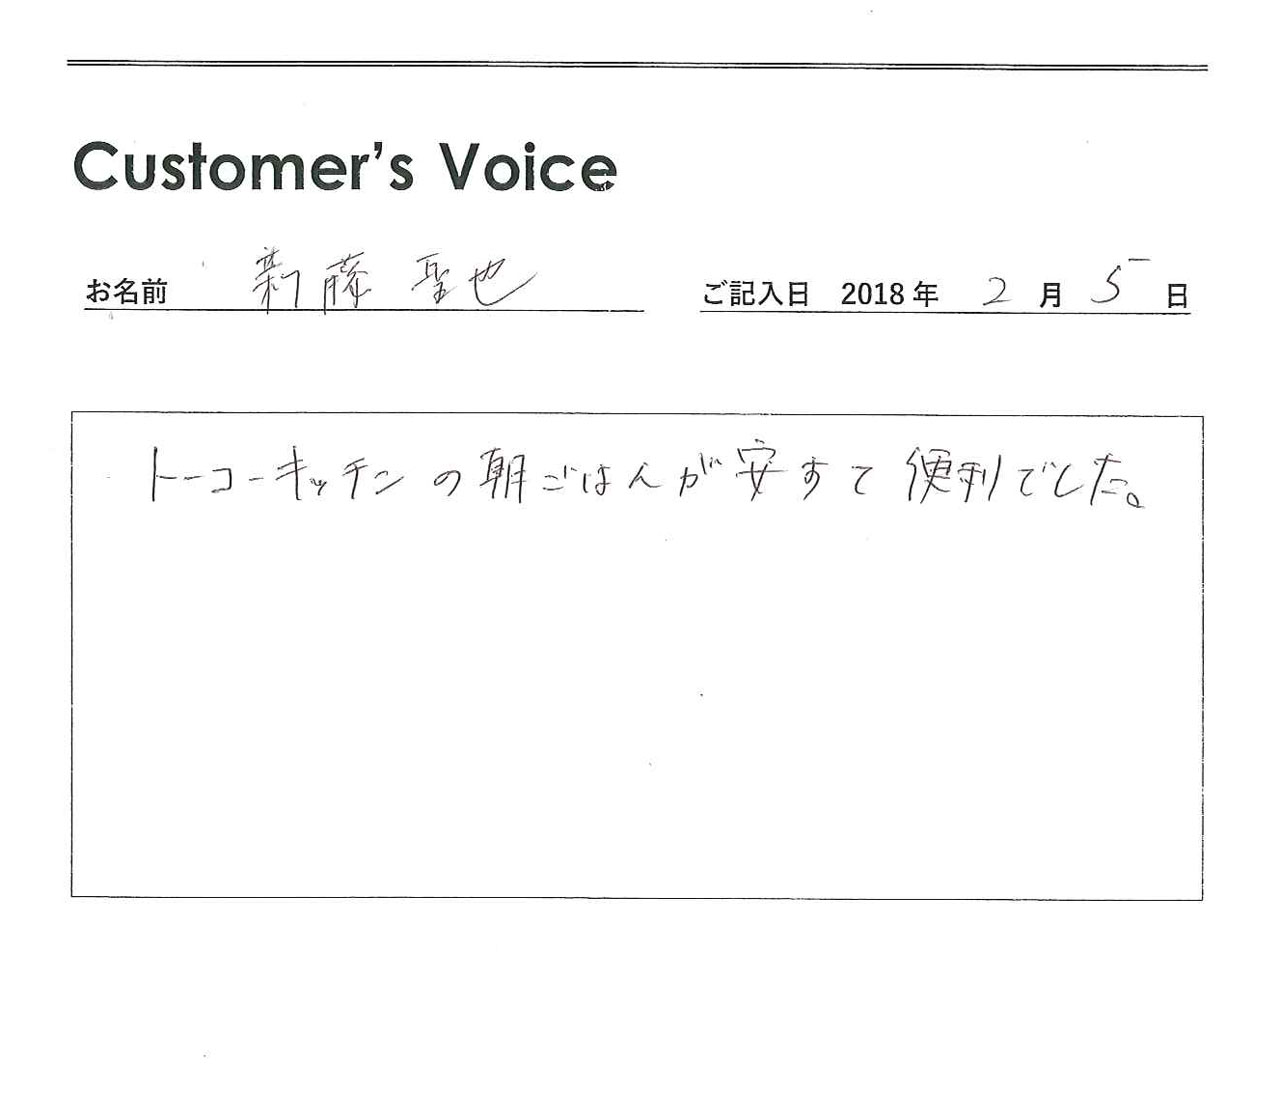 Customer's Voice
お名前 新藤 聖也 ご記入日 2018年 2月 5日
トーコーキッチンの朝ごはんが安すて便利でした。